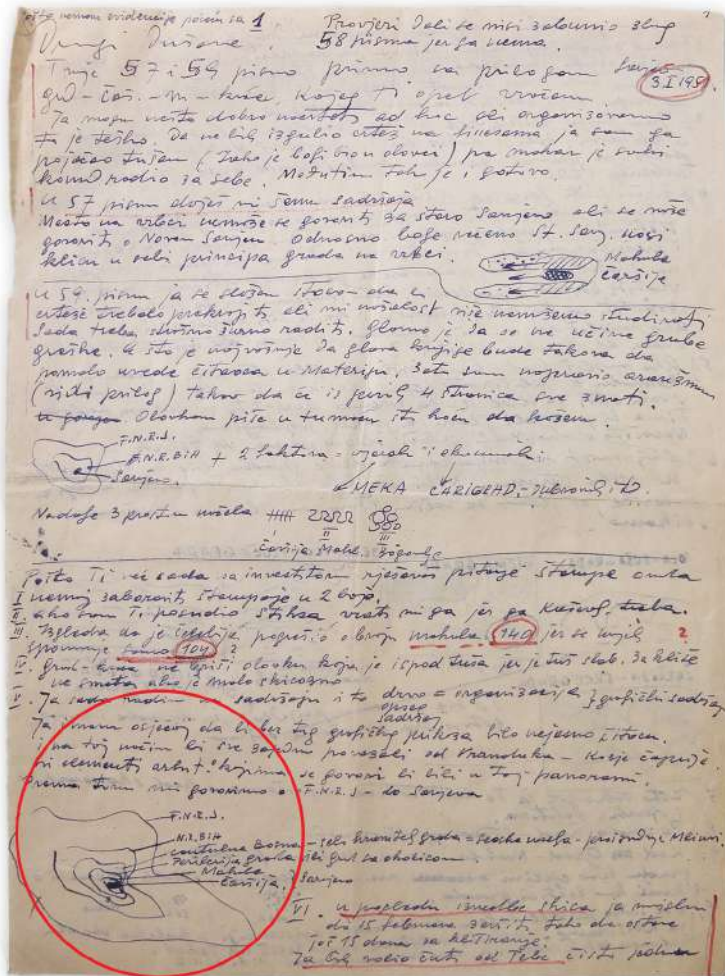 Pošto nemam evidencije počin sa 1
Provjeri Dali se nisi zabunio zbog
58 pisma jer ga nema.
Dragi Dušane.
3.I 1951
Tvoje 57 i 59 pismo primio sa prilogom
kojeg ti opet vraćam
Ja mogu nešto dobro nacrtati ad hoc ali organizovano
to je teško. Da nebih izgulio crtež na ja sam ga
pojačao tušem (Iako je bolji bio u olovci) pa makar je svaki
komad radio za sebe. Međutim tako je i gotovo.
U 57 pismu daješ mi šemu sadržaja
nemože se govoriti za staro Sarajevo ali se može
govoriti o Novom Sarajevu. Odnosno bolje rečeno St. Saraj. nosi
klicu u sebi principa grada na
Mahala
Čaršija
U 59. pismu ja se slažem da bi
crteže trebalo prekrojiti ali mi nažalost više nemožemo studirati
Sada treba strašno žurno raditi. Glavno je da se ne učine grube
greške. A što je najvažnije Da glava knjige bude takova da
pomalo uvede čitaoca u materiju. Zato sam napravio
(vidi prilog) tako da će iz prvih 4 stranica sve znati.
Olovkom piše u šta hoću da kažem.
F.N.R.J.
N.R. BiH + 2 faktora = vjerski i ekonomski.
Sarajevo.
MEKA CARIGRAD, Dubrovnik itd.
Nadalje 3 načela
I II III
Čaršija Mahal.
Pošto Ti već sada sa investitorom rješavaš pitanje štampe onda
I nemoj zaboraviti štampanje u 2 boje.
II ako sam Ti posudio vrati mi ga jer ga treba.
III. Izgleda da je Čelebija pogrešio o broju mahala 140 jer se
spominje samo 104 ?
?
IV. Grad-kuća ne briši olovku koja je ispod tuša jer je tuš slab. Za kliše
ne smeta ako je malo skicozno
V. Ja sada radim na sadržaju i to drvo = organizacija } grafički sadržaj
opseg
sadržaj
Ja imam osjećaj da bi bez tog grafičkog prikaza bilo nejasno čitaocu.
i na taj način bi sve zajedno povezali od Vranduka –
svi elementi arhit. o kojima se govori bi bili u toj panorami.
Prema tome mi govorimo o F.N.R.J – do Sarajeva
F.N.R.J.
N.R. BiH
centralna Bosna – selo hranitelj grada = seoska naselja –
Periferija grada ili grad sa okolicom
Mahala
Čaršija. } Sarajevo
VI. u pogledu izvedbe skica ja mislim
do 15 februara završiti tako da ostane
još 15 dana za kliširanje.
Ja bih volio čuti od Tebe